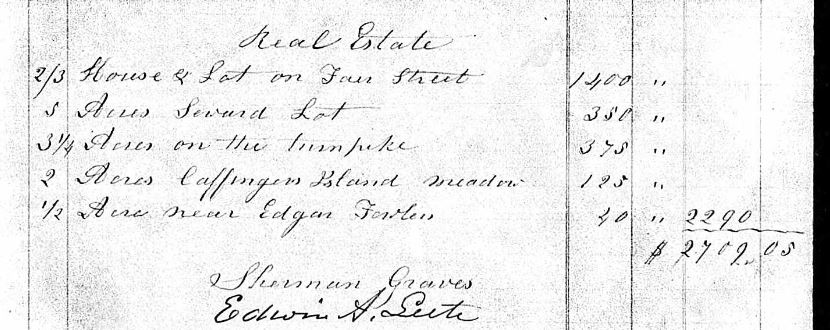 Real Estate
2/3 House & Lot on Fair Street 1400 "
5 Acres Seward Lot 350 "
3 1/4 Acres on the turnpike 375 "
2 Acres Caffingers Island meadow 125 "
1/2 Acre near Edgar Fowlers 40 " 2290
$ 2709.05
Sherman Graves
Edwin A. Leete